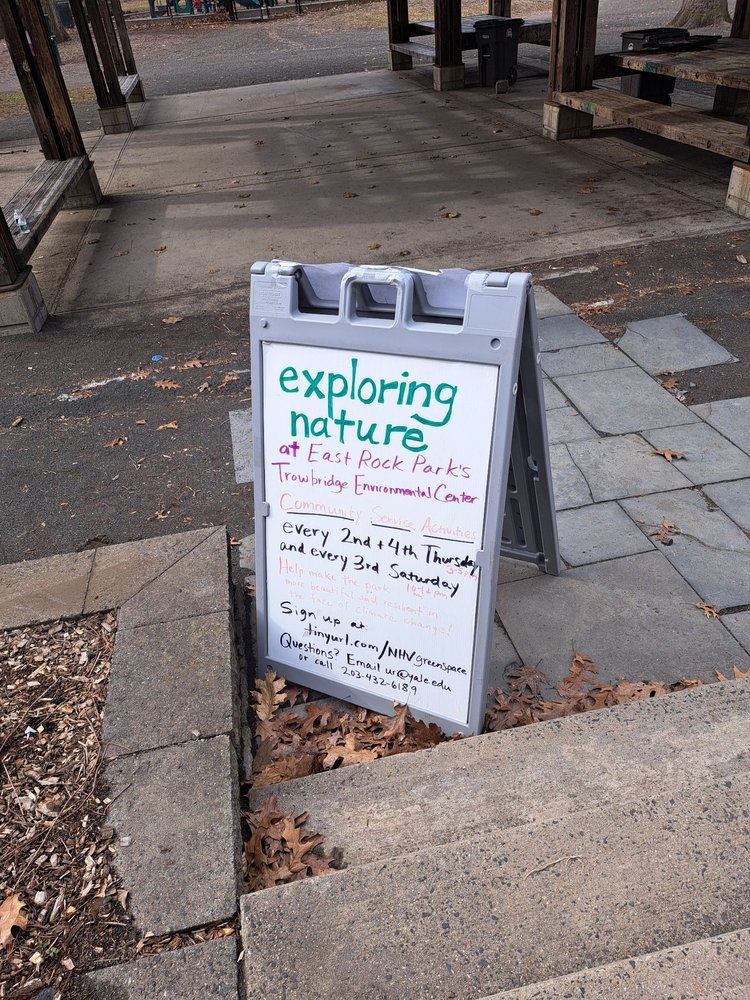 exploring
nature
at East Rock Park's
Trowbridge Environmental Center
Community Service Activities
every 2nd + 4th Thursday
and every 3rd Saturday
Help make the park
more beautiful and resilient in
the face of climate change!
Sign up at:
tinyurl.com/NHVgreenspace
Questions? Email uri@yale.edu
or call 203-432-6189